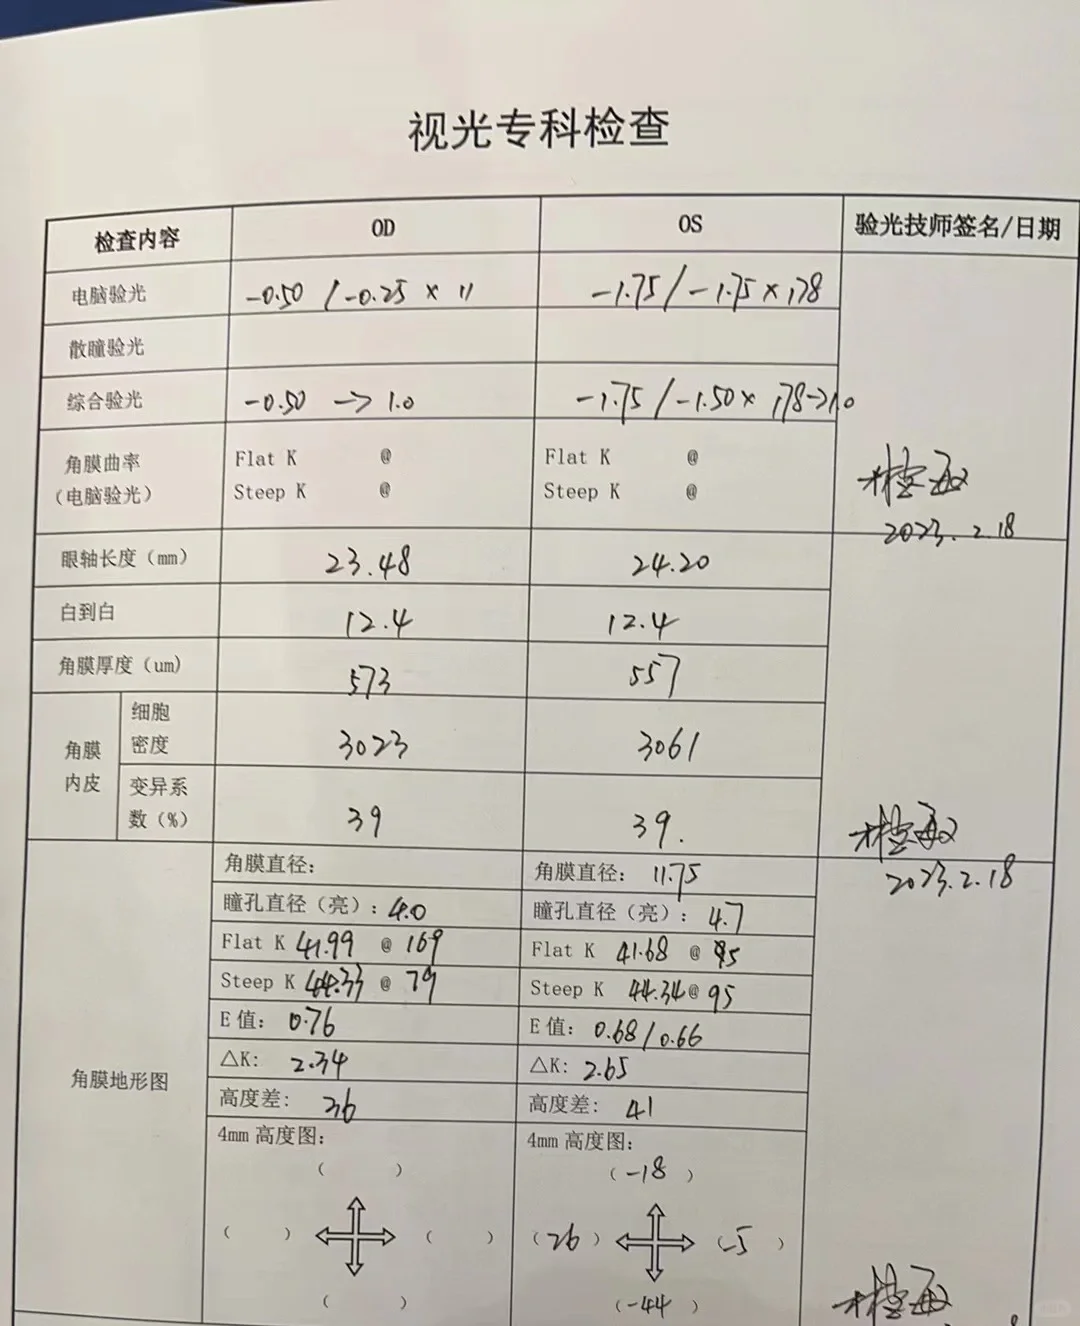 视光专科检查
检查内容 OD OS 验光技师签名/日期
电脑验光 -0.50 /-0.25 × 11 -1.75/-1.75×178
散瞳验光
综合验光 -0.50 → 1.0 -1.75/-1.50× 178→1.0
角膜曲率 Flat K @ Flat K @
(电脑验光) Steep K @ Steep K @
2023.2.18
眼轴长度(mm) 23.48 24.20
白到白 12.4 12.4
角膜厚度(um) 573 557
角膜内皮 细胞密度 3023 3061
变异系数(%) 39 39.
2023.2.18
角膜地形图
角膜直径: 角膜直径: 11.75
瞳孔直径(亮):4.0 瞳孔直径(亮): 4.7
Flat K 41.99 @ 169 Flat K 41.68 @ 5
Steep K 44.33 @ 79 Steep K 44.34@ 95
E值: 0.76 E值: 0.68/0.66
△K: 2.34 △K: 2.65
高度差: 36 高度差: 41
4mm高度图: 4mm高度图:
( ) (-18 )
( ) ( ) (26 ) (-5 )
( ) (-44 )